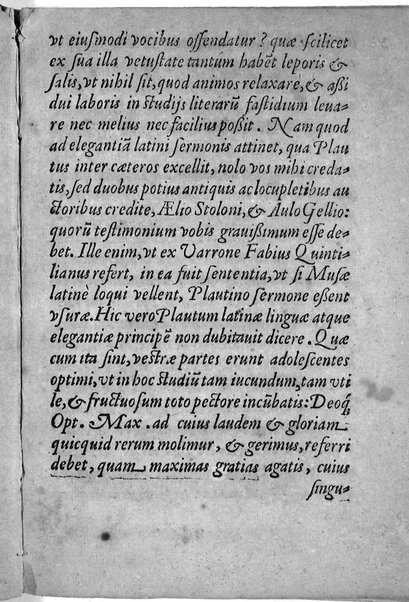 vt eiusmodi vocibus offendatur? quæ scilicet
ex sua illa vetustate tantum habēt leporis &
salis, vt nihil sit, quod animos relaxare, & aßi
dui laboris in studijs literarū fastidium leua-
re nec melius nec facilius poßit. Nam quod
ad elegantiā latini sermonis attinet, qua Plau
tus inter cæteros excellit, nolo vos mihi creda-
tis, sed duobus potius antiquis ac locupletibus au
ctoribus credite, Ælio Stoloni, & Aulo Gellio:
quorū testimonium vobis grauißimum esse de-
bet. Ille enim, vt ex Varrone Fabius Quinti-
lianus refert, in ea fuit sententia, vt si Musæ
latinè loqui vellent, Plautino sermone eßent
vsuræ. Hic vero Plautum latinæ linguæ atque
elegantiæ principē non dubitauit dicere. Quæ
cum ita sint, vestræ partes erunt adolescentes
optimi, vt in hoc studiū tam iucundum, tam vti
le, & fructuosum toto pectore incūbatis: Deoq́;
Opt. Max. ad cuius laudem & gloriam
quicquid rerum molimur, & gerimus, referri
debet, quam maximas gratias agatis, cuius
singu-